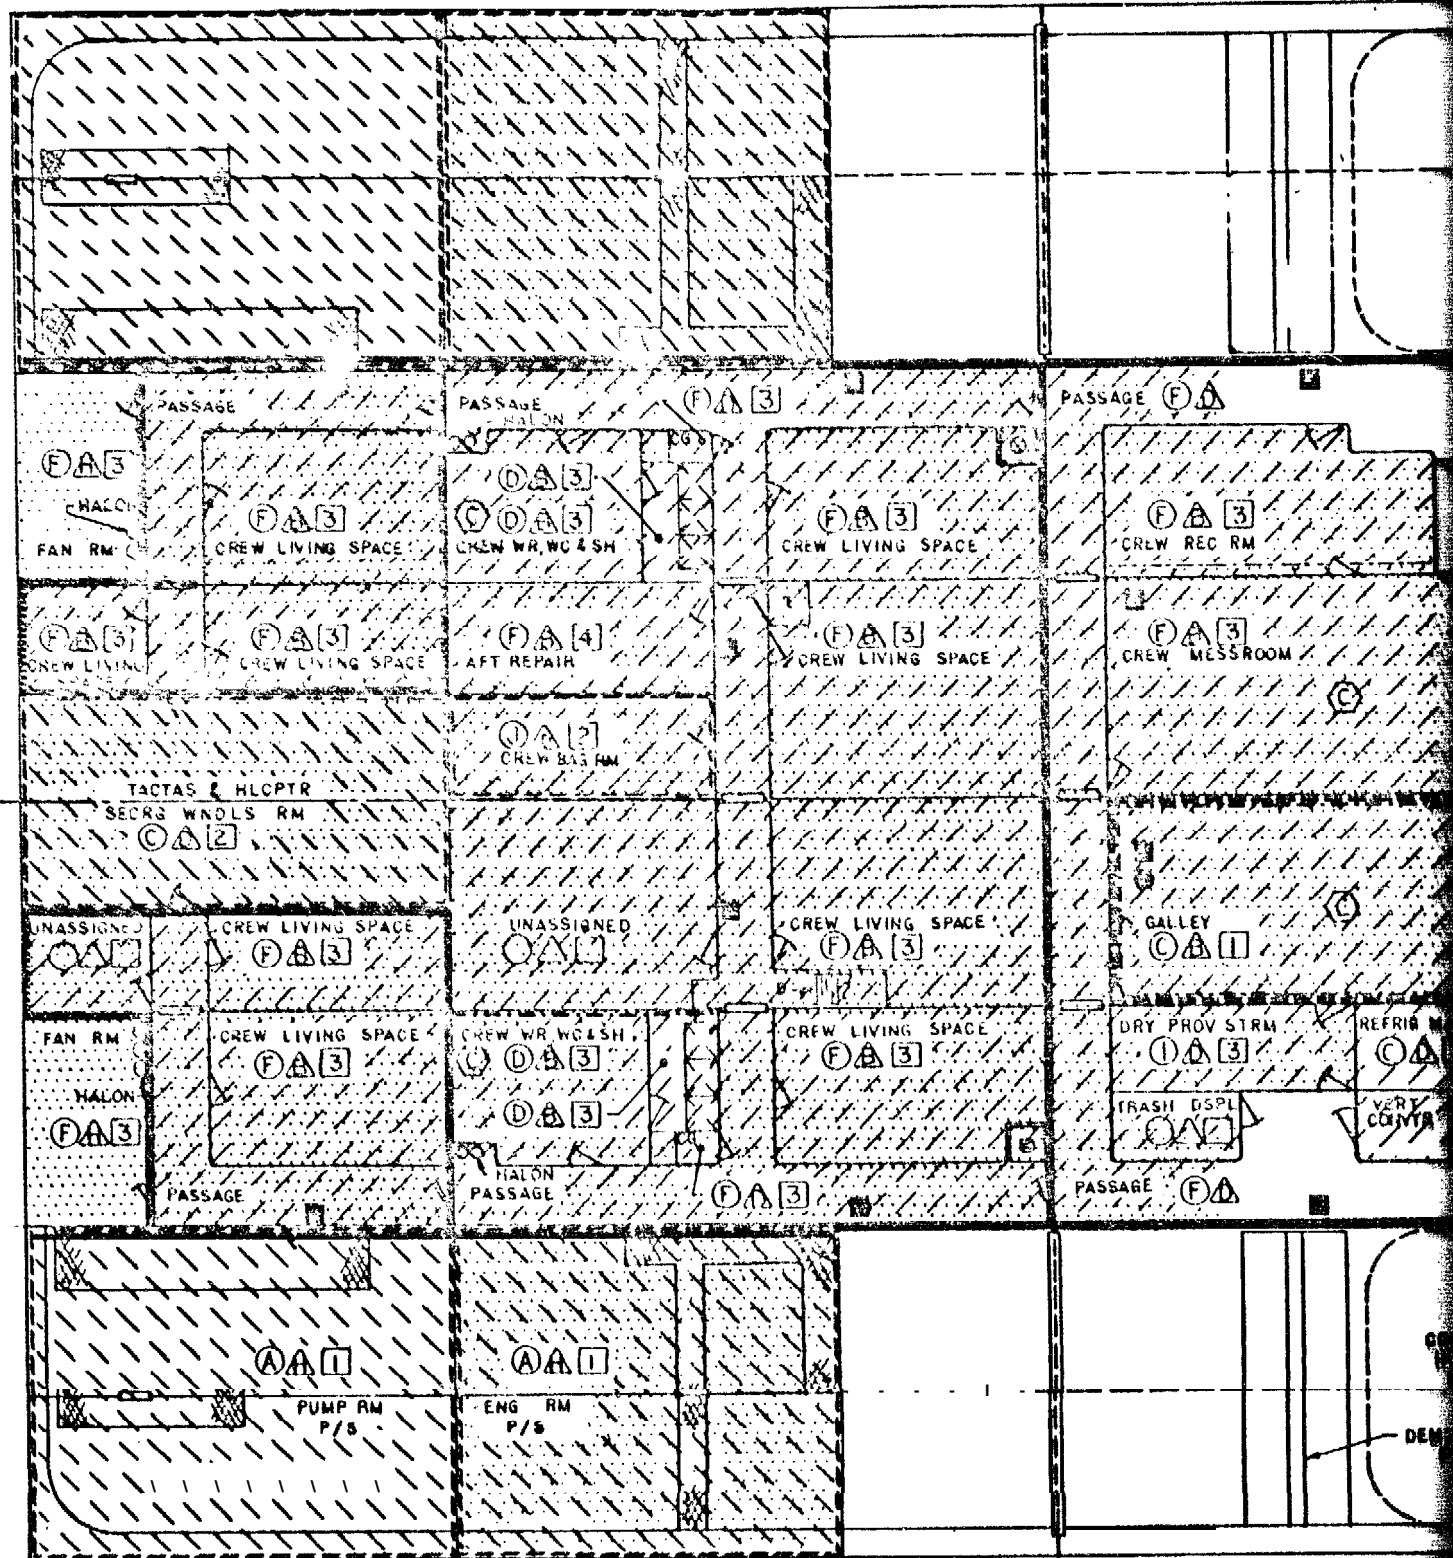 PASSAGE
PASSAGE
HALON
F A 3
PASSAGE F D
F A 3
HALON
FAN RM
F B 3
CREW LIVING SPACE
CG
D B 3
C D B 3
CREW WR, WC & SH
F B 3
CREW LIVING SPACE
F B 3
CREW REC RM
F B 3
CREW LIVING
F B 3
CREW LIVING SPACE
F A 4
AFT REPAIR
F B 3
CREW LIVING SPACE
F B 3
CREW MESSROOM
C
CREW BAG RM
TACTAS & HLCPTR
SECRG WNDLS RM
C A 2
UNASSIGNED
CREW LIVING SPACE
F B 3
UNASSIGNED
CREW LIVING SPACE
F B 3
C
GALLEY
C B 1
FAN RM
HALON
F A 3
CREW LIVING SPACE
F B 3
CREW WR, WC & SH
C D B 3
D B 3
CREW LIVING SPACE
F B 3
DRY PROV STRM
I D 3
REFRIG M
C D
TRASH DSPL
VERT
CONVYR
PASSAGE
HALON
PASSAGE
F A 3
PASSAGE F D
A A 1
PUMP RM
P/S
A A 1
ENG RM
P/S
DEM